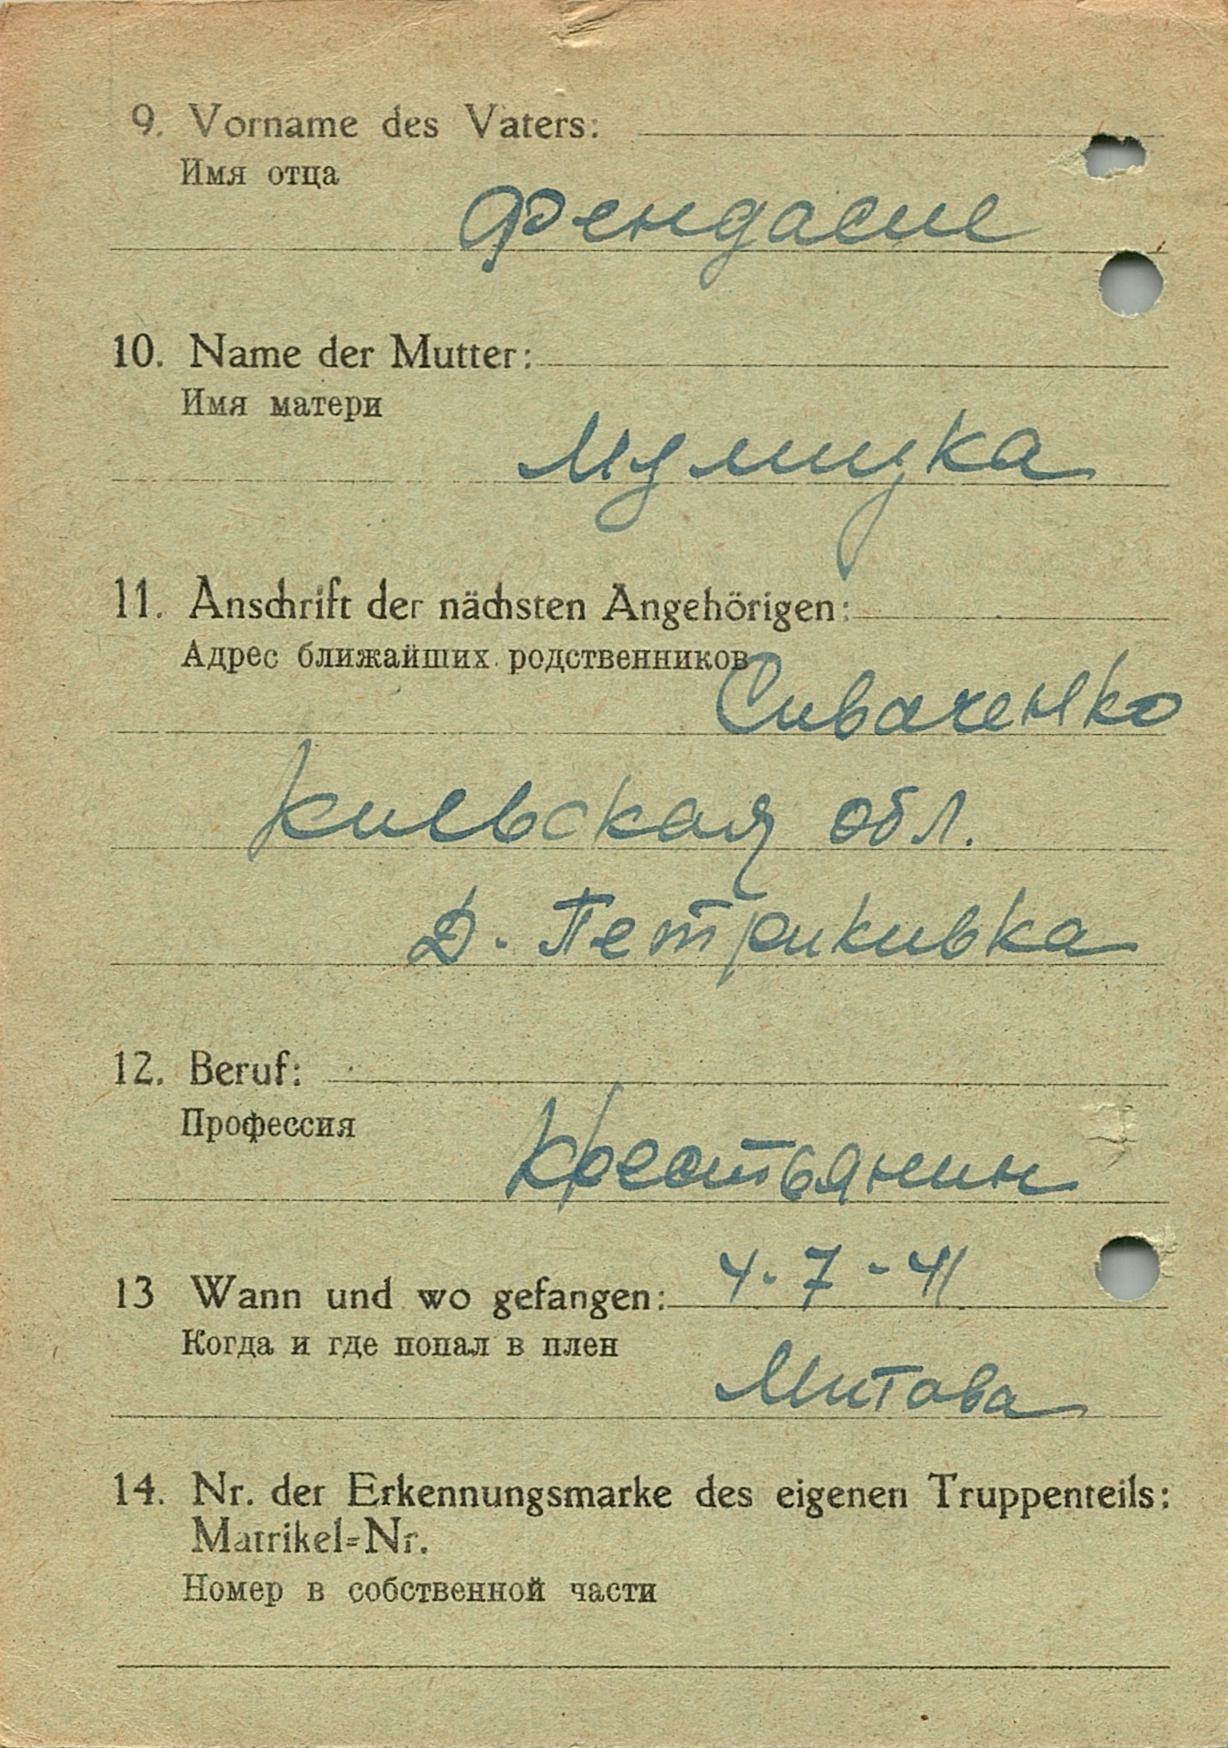 9. Vorname des Vaters:
Имя отца
Фендасие
10. Name der Mutter:
Имя матери
11. Anschrift der nächsten Angehörigen:
Адрес ближайших родственников
Сиваченко
Киевская обл.
Д. Петрикивка
12. Beruf:
Профессия
Крестьянин
13 Wann und wo gefangen: 4.7-41
Когда и где попал в плен
Митава
14. Nr. der Erkennungsmarke des eigenen Truppenteils:
Matrikel=Nr.
Номер в собственной части